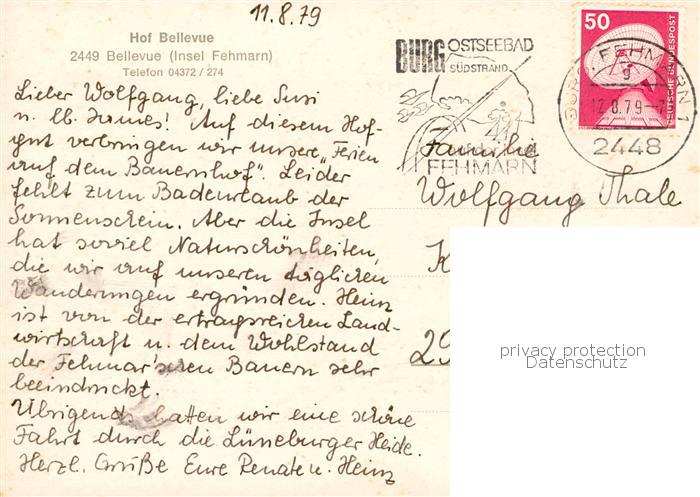 11.8.79
Hof Bellevue
2449 Bellevue (Insel Fehmarn)
Telefon 04372 / 274
Lieber Wolfgang, liebe Susi
u. lb. Hannes! Auf diesem Hof-
gut verbringen wir unsere „Ferien
auf dem Bauernhof". Leider
fehlt zum Badeurlaub der
Sonnenschein. Aber die Insel
hat soviel Naturschönheiten,
die wir auf unseren täglichen
Wanderungen ergründen. Heinz
ist von der ertragreichen Land-
wirtschaft u. dem Wohlstand
der Fehmar'schen Bauern sehr
beeindruckt.
Übrigends hatten wir eine schöne
Fahrt durch die Lüneburger Heide.
Herzl. Grüße Eure Renate u. Heinz
BURG OSTSEEBAD
SÜDSTRAND
FEHMARN
50
DEUTSCHE BUNDESPOST
BURG FEHMARN 1
g
12.8.79-7
2448
Familie
Wolfgang Thale
K
29
privacy protection
Datenschutz